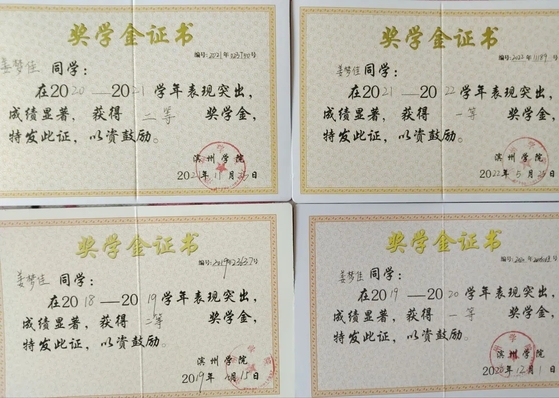 奖学金证书
姜梦佳 同学：
在2020—2021学年表现突出，
成绩显著，获得 二等 奖学金，
特发此证，以资鼓励。
滨州学院
奖学金证书
姜梦佳 同学：
在2021—2022学年表现突出，
成绩显著，获得 一等 奖学金，
特发此证，以资鼓励。
滨州学院
2022年5月25日
奖学金证书
姜梦佳 同学：
在2018—2019学年表现突出，
成绩显著，获得 二等 奖学金，
特发此证，以资鼓励。
滨州学院
奖学金证书
姜梦佳 同学：
在2019—2020学年表现突出，
成绩显著，获得 一等 奖学金，
特发此证，以资鼓励。
滨州学院
2020年12月1日